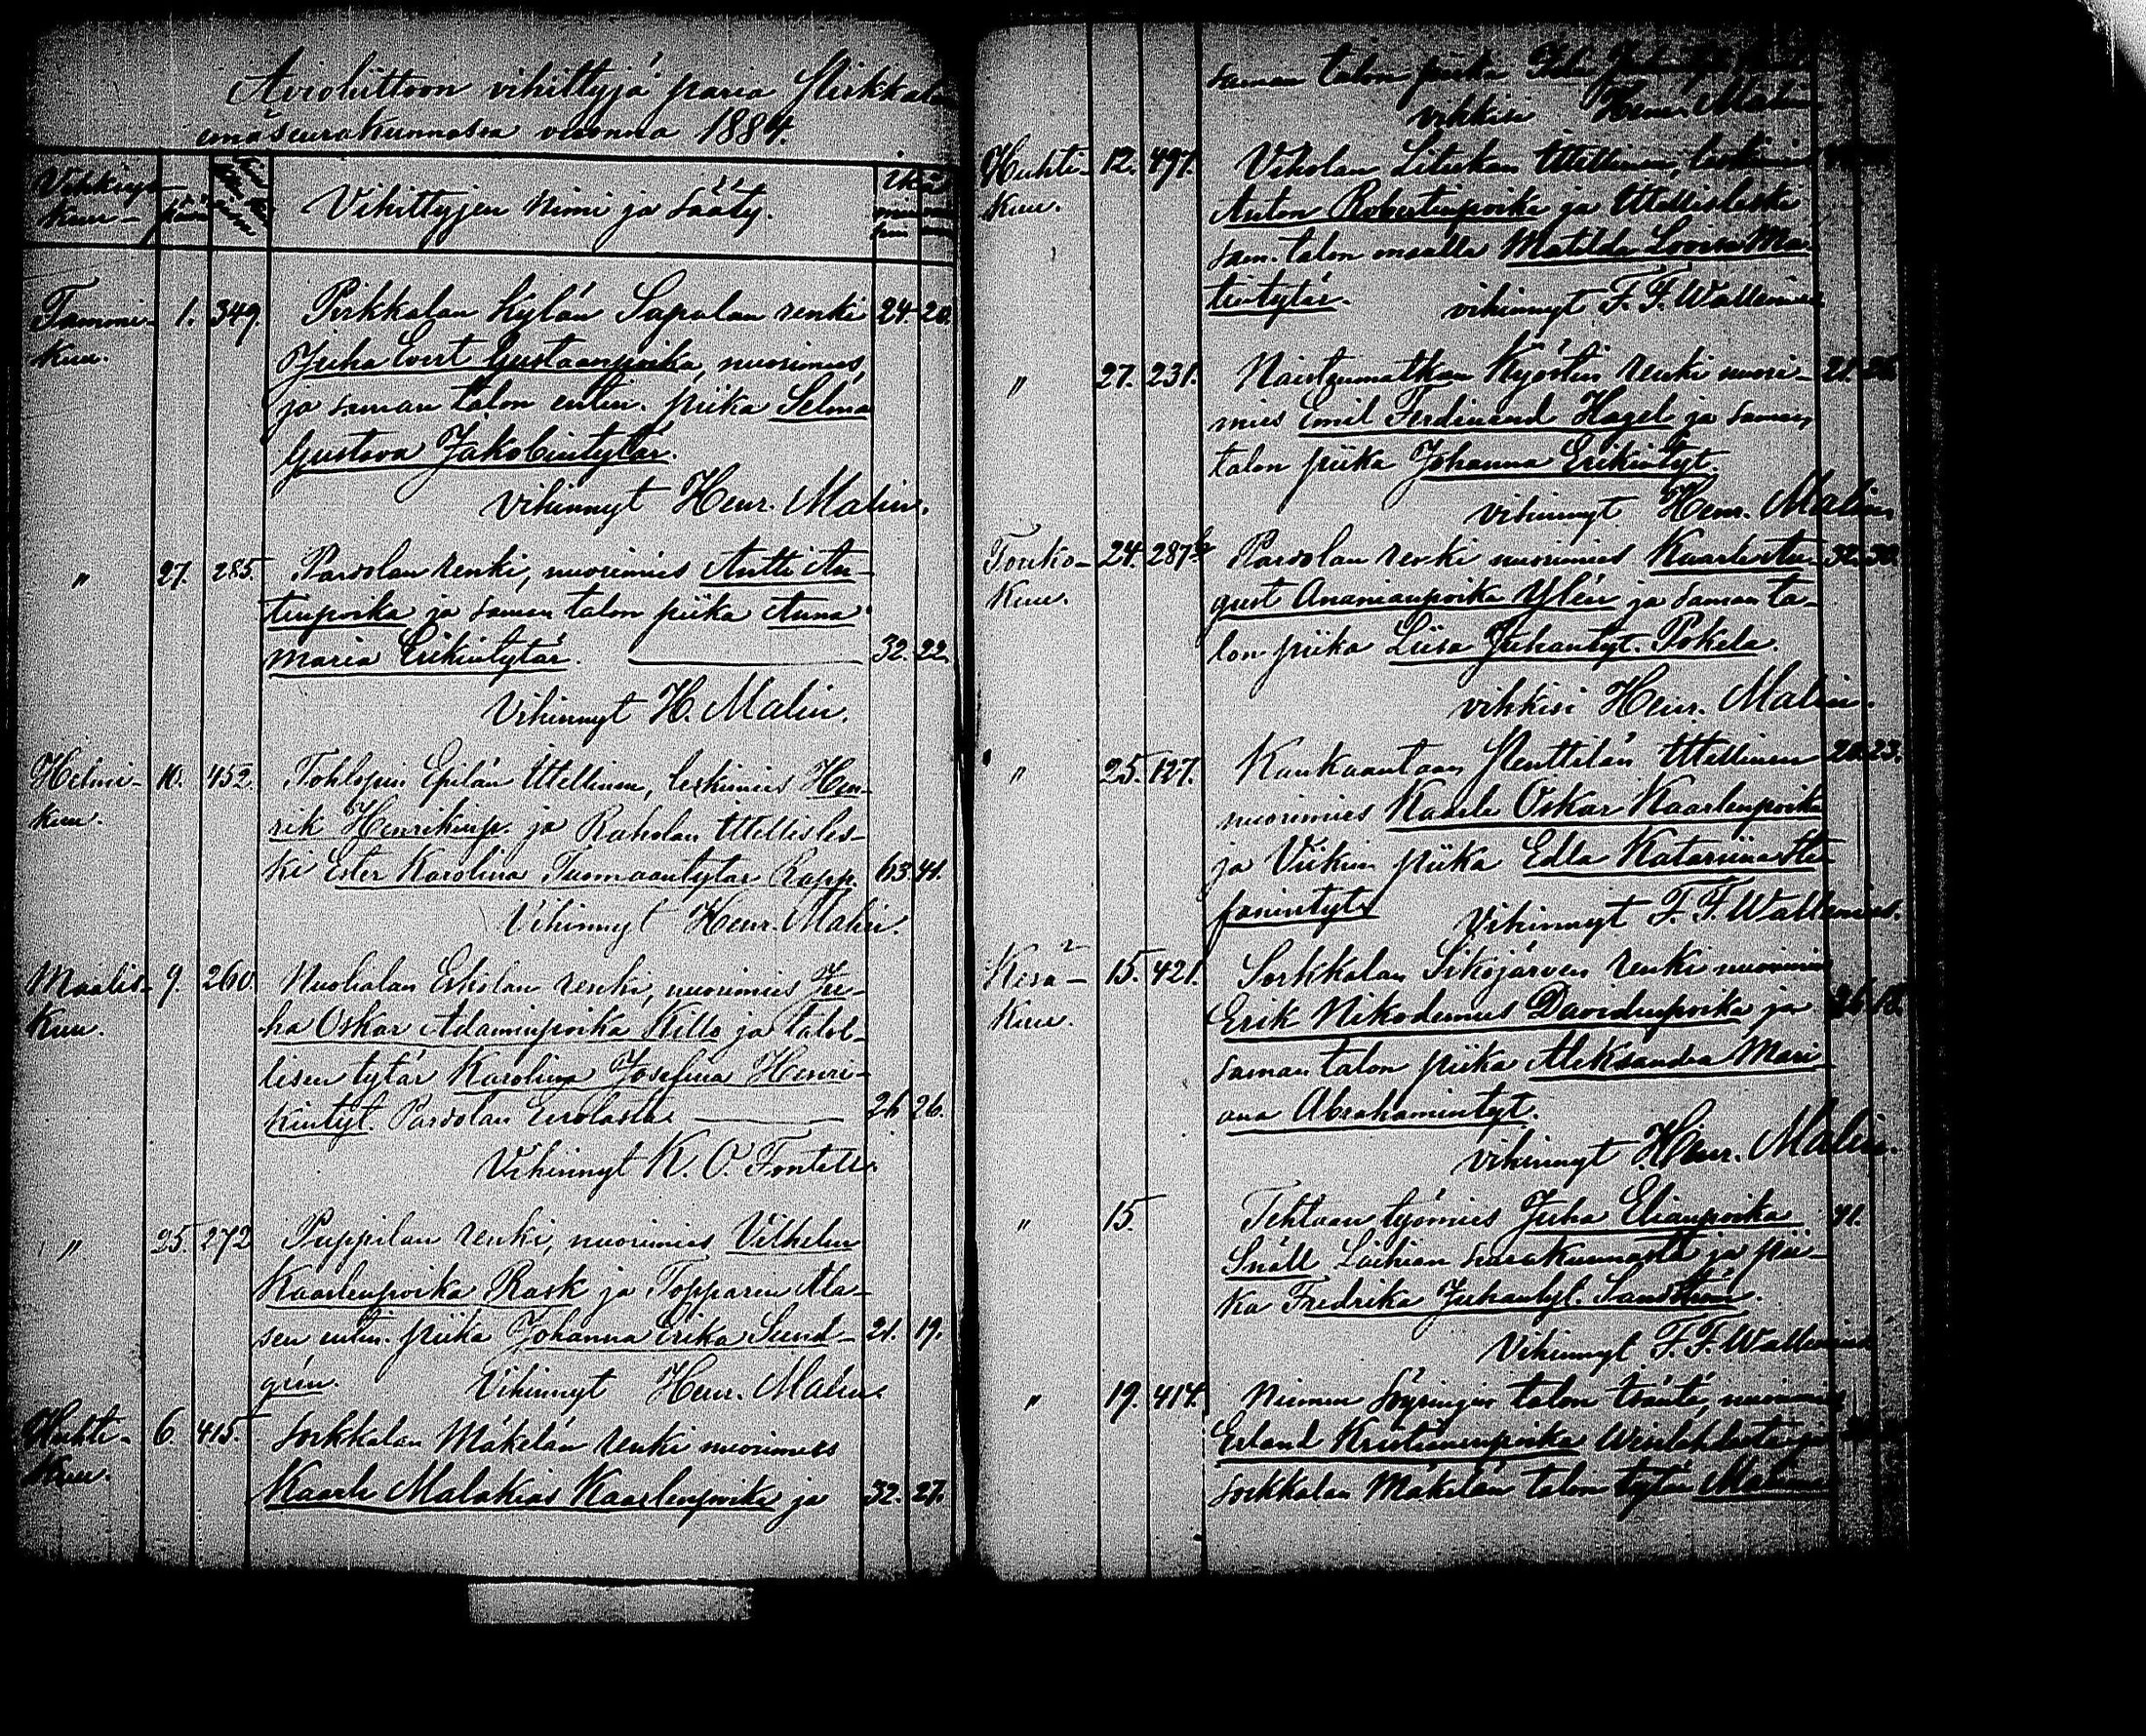 Avioliittoon vihittyjä paria Pirkkalan
emäseurakunnassa vuonna 1884.
Vihkiys
Kuu- päivä
Vihittyjen nimi ja sääty.
ikä
Tammi- 1. 349. Pirkkalan Kylän Sapolan renki 24. 20.
Kuu. Juha Evert Gustaanpoika, nuorimies,
ja saman talon entin. piika Selma
Gustava Jakobintytär.
Vihinnyt Henr. Malin.
" 27. 285. Parvolan renki, nuorimies Antti An-
tinpoika ja saman talon piika Anna
Maria Erikintytär. 32. 22.
Vihinnyt H. Malin.
Helmi- 10. 452. Tohlopin Epilän Ittellinen, leskimies Hen-
kuu. rik Henrikinp. ja Raholan Ittellisles-
ki Ester Karolina Tuomaantytär Rapp. 63. 41.
Vihinnyt Henr. Malin.
Maalis- 9. 260. Nuolialan Erkolan renki, nuorimies Ju-
Kuu. ha Oskar Adaminpoika Killo ja talol-
lisen tytär Karolina Josefina Henri-
kintyt. Parvolan Eerolasta 26 26.
Vihinnyt K. O. Fontell.
" 25. 272 Pappilan renki, nuorimies Vilhelm
Kaarlenpoika Rask ja Topparin Ala-
sen entin. piika Johanna Erika Sund- 21. 19.
grén. Vihinnyt Henr. Malin.
Huhti- 6. 415. Sorkkalan Mäkelän renki nuorimies
Kuu. Kaarle Malakias Kaarlenpoika ja 32. 27.
saman talon piika
vihkisi Henr. Malin
Huhti- 12. 497. Viholan Liuksan Ittellinen, leskimies
Kuu. Anton Robertinpoika ja Ittellisleski
sam. talon maalla Matilda Lovisa Ma-
tintytär. vihinnyt F. F. Wallenius
" 27. 231. Naistenmatkan Kyöstin renki nuori- 21. 26
mies Emil Ferdinand Hagel ja saman
talon piika Johanna Erikintyt.
vihinnyt Henr. Malin
Touko- 24. 287½ Parvolan renki nuorimies Kaarle Au- 32. 30.
Kuu. gust Ananianpoika Ylén ja saman ta-
lon piika Liisa Juhantyt. Pokela.
vihkisi Henr. Malin.
" 25. 127. Kankaantaan Penttilän Ittellinen 23.
nuorimies Kaarle Oskar Kaarlenpoika
ja Viikin piika Edla Katariina Ste-
fanintyt. Vihinnyt F. F. Wallenius.
Kesä- 15. 421. Sorkkalan Sikojärven renki nuorimies
Kuu. Erik Nikodemus Davidinpoika ja
saman talon piika Aleksandra Mari-
ana Abrahamintyt.
vihinnyt Henr. Malin.
" 15. Tehtaan työmies Juha Elianpoika 41.
Snäll Laihian seurakunnasta ja pii-
ka Fredrika Juhantyt. Sandström.
Vihinnyt F. F. Wallenius
" 19. 414. talon nuorimies
Erland Kristianinpoika ja
Sorkkalan Mäkelän talon tytär